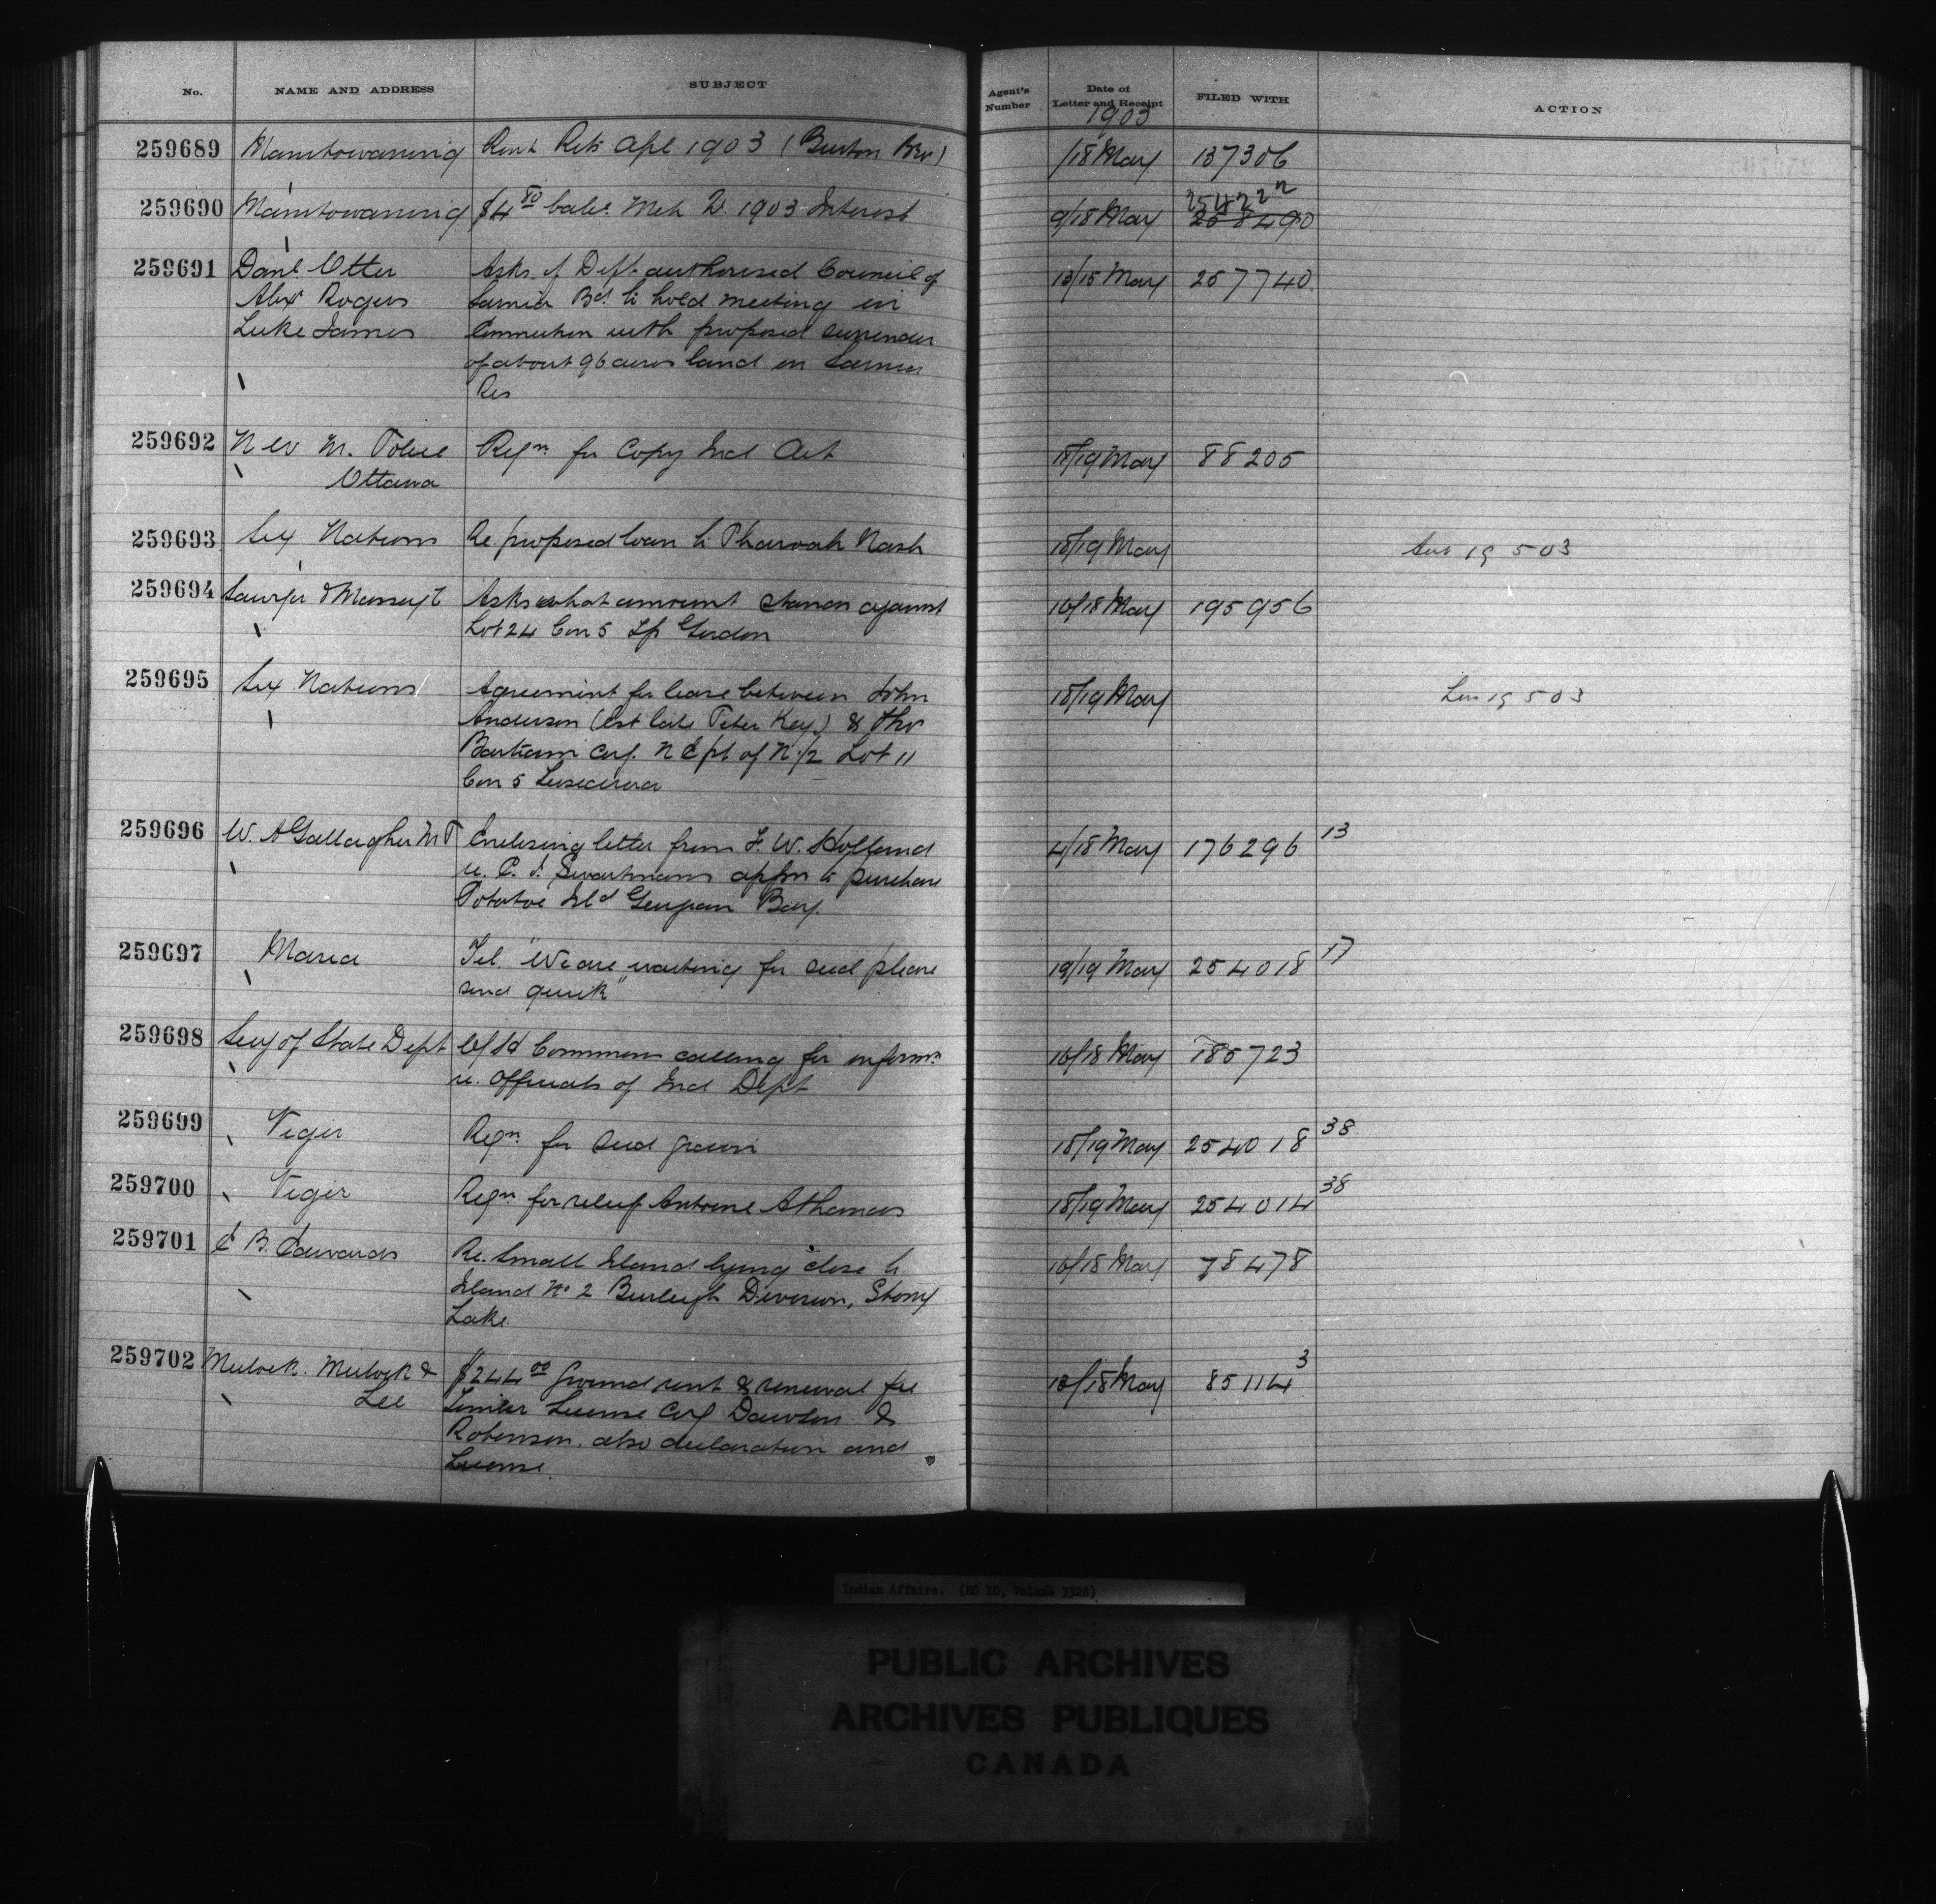 No. NAME AND ADDRESS SUBJECT Agent's Number Date of Letter and Receipt FILED WITH ACTION
1903
259689 Manitowaning Rent Rets Apl 1903 (Burton Bro) /18 May 137306
259690 Manitowaning $4 80 bal Mch Qr 1903 Interest 9/18 May 258490 25422 2
259691 Danl Otter Asks if Dept authorised Council of 13/15 May 257740
Alex Rogers Sarnia Bd to hold meeting in
Luke James Connection with proposed surrender
of about 96 acres land on Sarnia
Res
259692 N W M. Police Reqn for Copy Ind Act 18/19 May 88205
Ottawa
259693 Six Nations Re. proposed loan to Pharoah Nash 18/19 May 19 5 03
259694 Sawyer & Massey Asks what amount stands against 16/18 May 195956
Lot 24 Con 5 Tp Gordon
259695 Six Nations Agreement for lease between John 18/19 May 19 5 03
Anderson (Est late Peter Key) & Thos
Bartram Covg. N E pt of N 1/2 Lot 11
Con 5 Tuscarora
259696 W. A Gallagher M P Enclosing letter from F. W. Holland 4/18 May 176296 13
re. C. J. Swartmans appn to purchase
Potatoe Isld Georgian Bay.
259697 Maria Tel. "We are waiting for seed please 19/19 May 254018 17
send quick"
259698 Secy of State Dept O/H Commons calling for informn 16/18 May 185723
re. officials of Ind Dept
259699 Viger Reqn for seed grain 18/19 May 254018 38
259700 Viger Reqn for relief Antoine Athanas 18/19 May 254014 38
259701 E B. Edwards Re. Small Island lying close to 16/18 May 78478
Island No 2 Burleigh Division, Stony
Lake.
259702 Mulock. Mulock & $244 00 ground rent & renewal fee 18/18 May 85114 3
Lee Timber License Covg Dawson &
Robinson. also declaration and
License.
Indian Affairs. (RG 10, Volume 3328)
PUBLIC ARCHIVES
ARCHIVES PUBLIQUES
CANADA